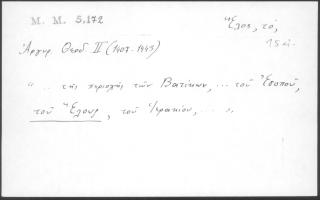 M. M. 5,172
Ἕλος, τό,
15 αἰ.
Ἀργυρ. Θεοδ. II (1407-1443)
" .. τῆς περιοχῆς τῶν Βατίκων, ... τοῦ Ἐσωποῦ,
τοῦ Ἕλους, τοῦ Ἱερακίου, ... "